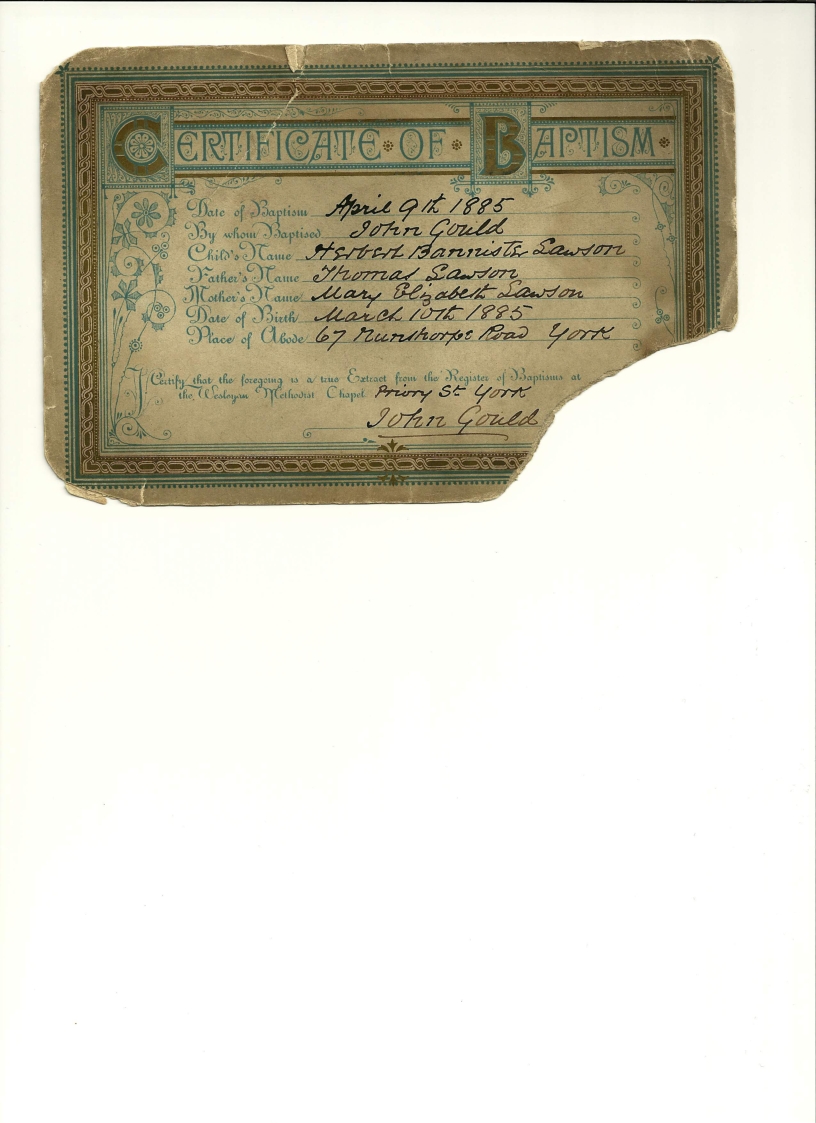 CERTIFICATE OF BAPTISM
Date of Baptism April 9th 1885
By whom Baptised John Gould
Child's Name Herbert Bannister Lawson
Father's Name Thomas Lawson
Mother's Name Mary Elizabeth Lawson
Date of Birth March 10th 1885
Place of Abode 67 Nunthorpe Road York
I Certify that the foregoing is a true Extract from the Register of Baptisms at
the Wesleyan Methodist Chapel Priory St York
John Gould